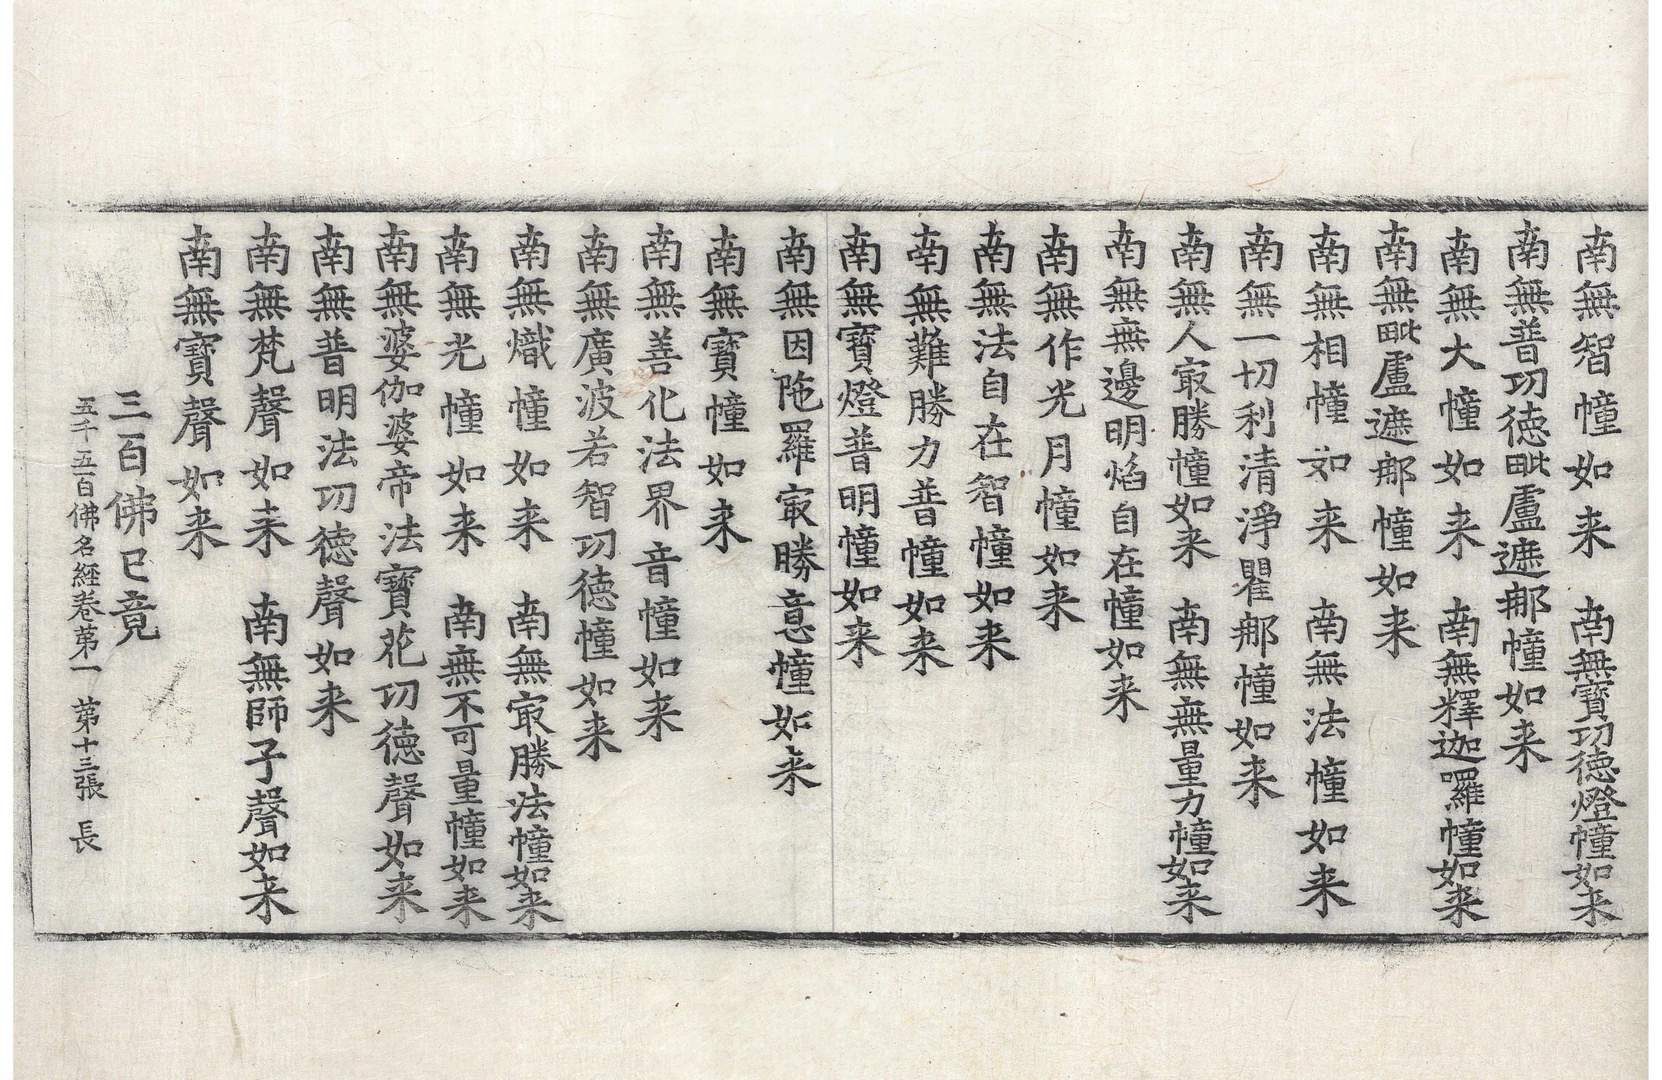 南無智幢如来　南無寶功徳燈幢如来
南無普功徳毗盧遮那幢如来
南無大幢如来　南無釋迦羅幢如来
南無毗盧遮那幢如来
南無相幢如来　南無法幢如来
南無一切利清淨瞿那幢如来
南無人㝡勝幢如来　南無無量力幢如来
南無無邊明焰自在幢如来
南無作光月幢如来
南無法自在智幢如来
南無難勝力普幢如来
南無寶燈普明幢如来
南無因陁羅㝡勝意幢如来
南無寶幢如来
南無善化法界音幢如来
南無廣波若智功徳幢如来
南無熾幢如来　南無㝡勝法幢如来
南無光幢如来　南無不可量幢如来
南無婆伽婆帝法寶花功徳聲如来
南無普明法功徳聲如来
南無梵聲如来　南無師子聲如来
南無寶聲如来
三百佛已竟
五千五百佛名經卷苐一　第十三張　長